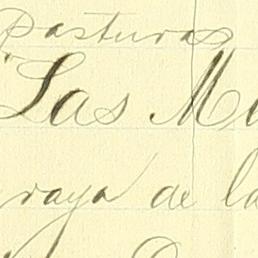 Pasturas
"Las M
raya de la